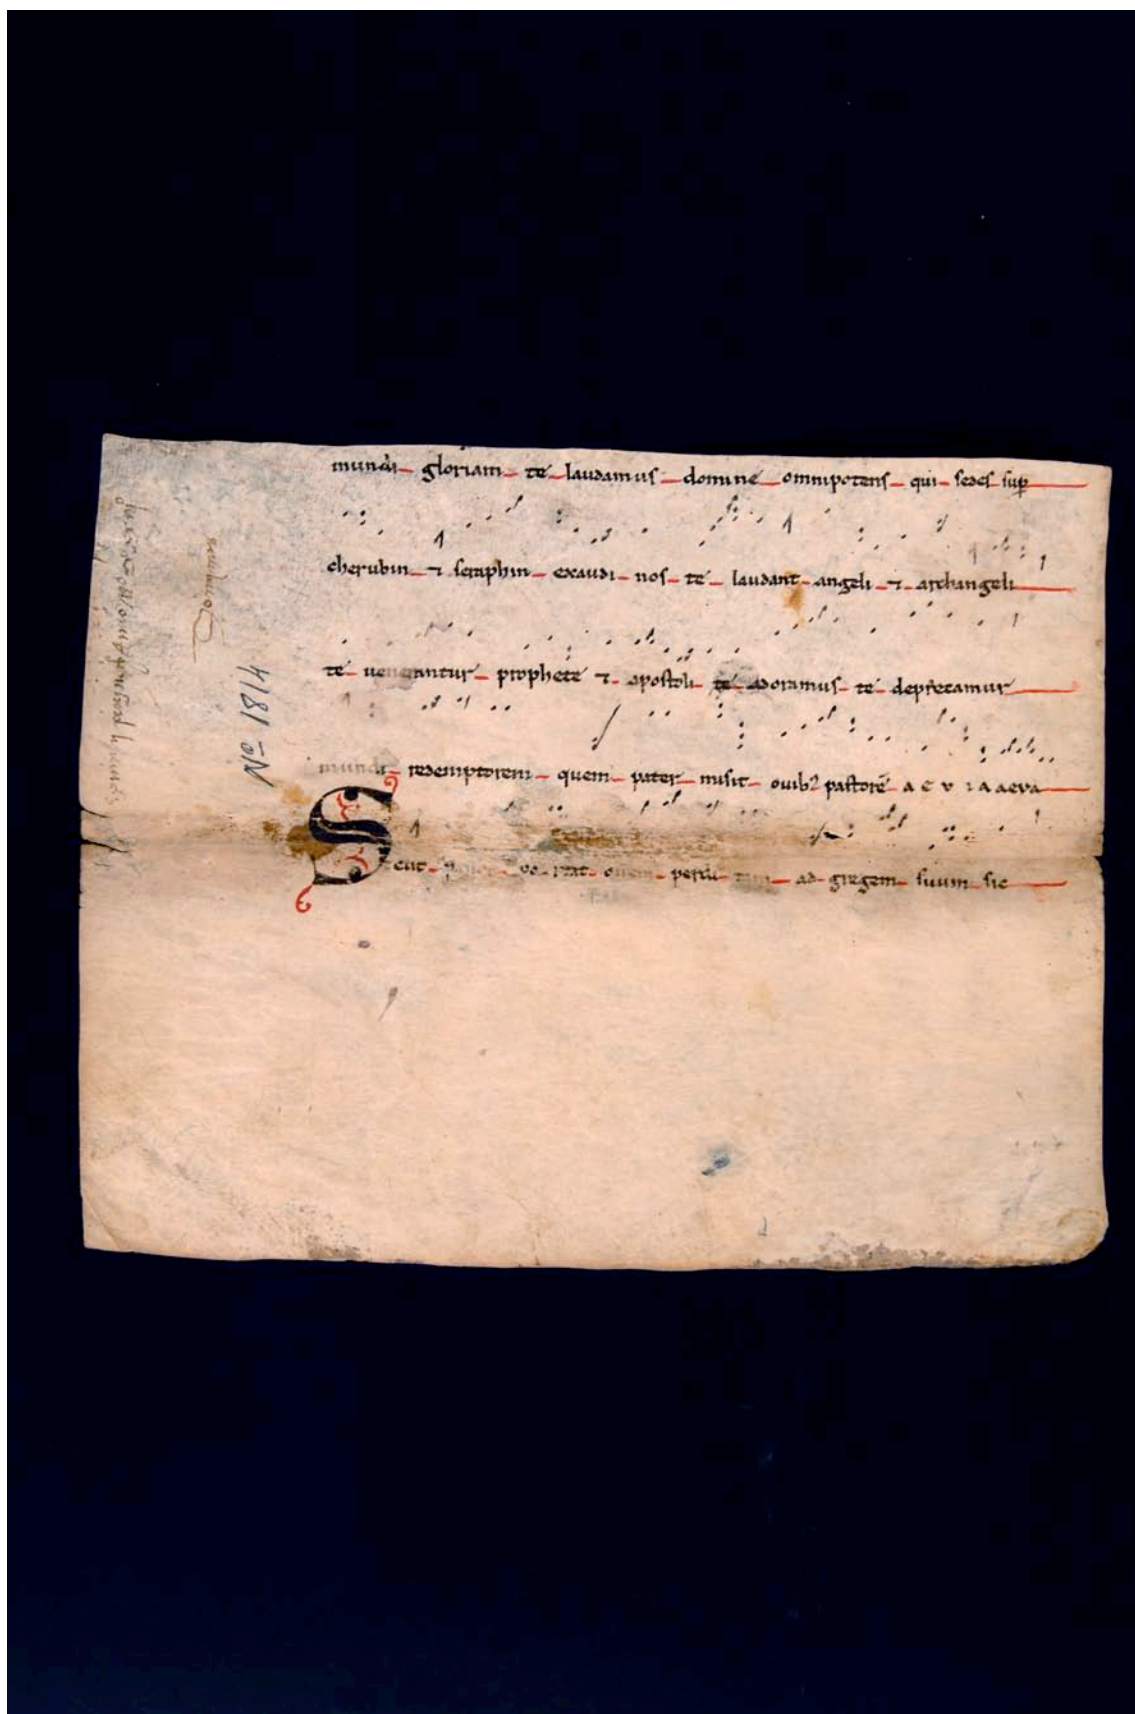 mundi gloriam te laudamus domine omnipotens qui sedes sup̄
cherubin ⁊ seraphin exaudi nos te laudant angeli ⁊ archangeli
te venerantur prophete ⁊ apostoli te adoramus te deprecamur
mundi redemptorem quem pater misit ovibꝫ pastorē a e v i a aeva
Sicut portat ovem ad gregem suum sic
No 1814